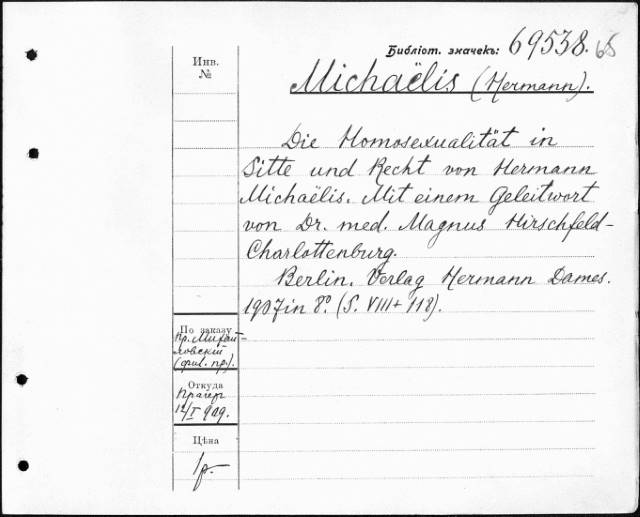 Библіот. значекъ: 69538. 68
Инв.
№
Michaëlis (Hermann).
Die Homosexualität in
Sitte und Recht von Hermann
Michaëlis. Mit einem Geleitwort
von Dr. med. Magnus Hirschfeld-
Charlottenburg.
Berlin. Verlag Hermann Dames.
1907 in 8° (S. VIII + 118).
По заказу
Пр. Михай-
ловскій
(фил. пр.).
Откуда
Прагер
12/I 909.
Цѣна
1р.